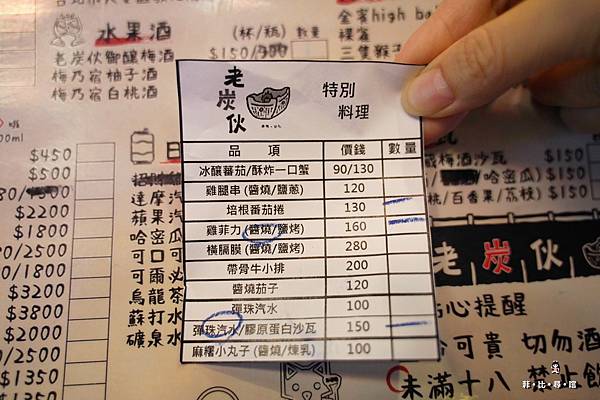 水果酒 (杯/瓶) 數量
老炭伙御釀梅酒 $150/900
梅乃宿柚子酒
梅乃宿白桃酒
金賓high ba
裸雀
三隻猴子
老炭伙
特別
料理
品 項 價錢 數量
冰釀蕃茄/酥炸一口蟹 90/130
雞腿串 (醬燒/鹽蔥) 120
培根蕃茄捲 130
雞菲力 (醬燒/鹽烤) 160
橫膈膜 (醬燒/鹽烤) 280
帶骨牛小排 200
醬燒茄子 120
彈珠汽水 100
彈珠汽水/膠原蛋白沙瓦 150
麻糬小丸子 (醬燒/煉乳) 100
$450
$500
$2200
$1800
$3200
$3800
$1350
$1350
達摩汽
蘋果汽
哈密瓜
可口可
可爾必
烏龍茶
蘇打水
礦泉水
梅酒沙瓦 $150
/哈密瓜) $150
桃/百香果/荔枝) $150
老炭伙
貼心提醒
可貴 切勿酒
未滿十八 禁止飲
菲·比·尋·蹤